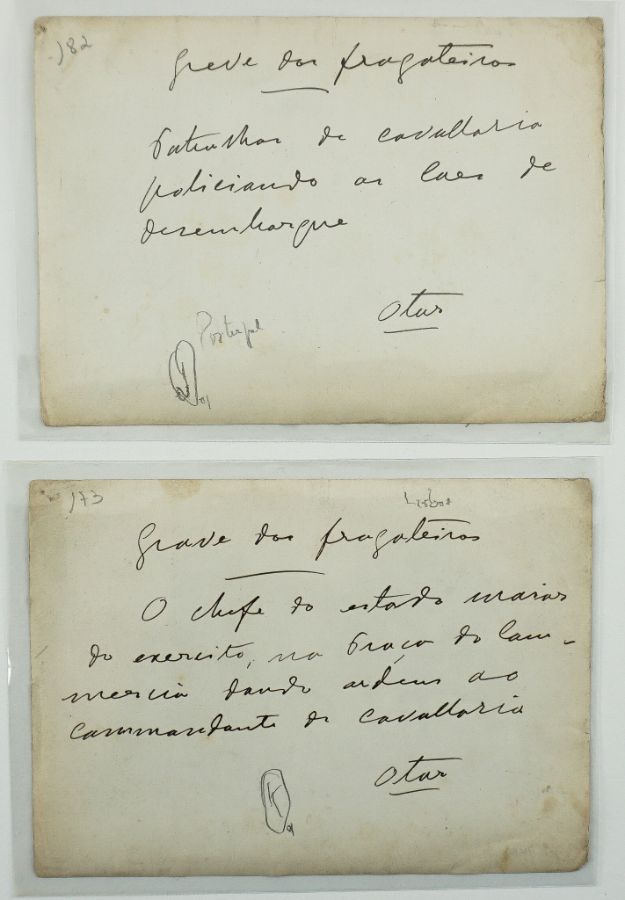 182
Greve dos fragateiros
Patrulhas de cavallaria
policiando os Caes de
desembarque
Portugal
173
Lisboa
Greve dos fragateiros
O chefe do estado maior
do exercito, na Praça do Com-
mercio dando ordens ao
commandante de cavallaria
K